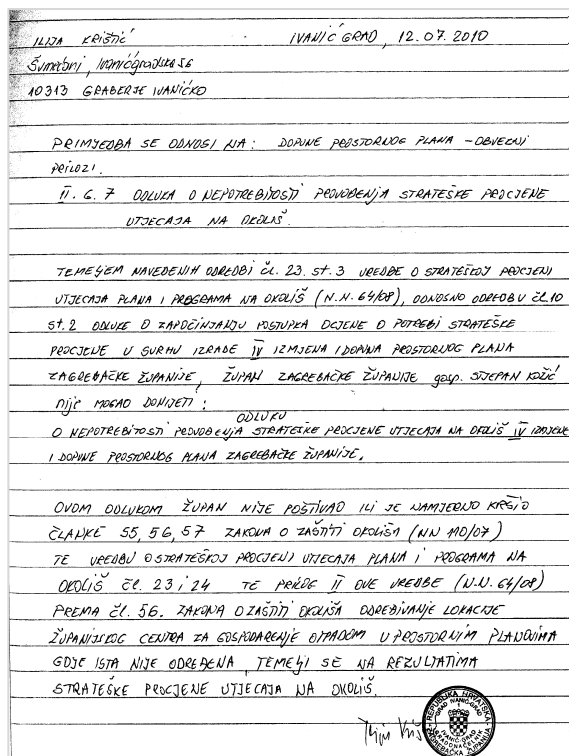 ILIJA KRIŠTIĆ IVANIĆ GRAD, 12.07.2010
Šumećani, Ivanićgradska 56
10313 GRABERJE IVANIĆKO
PRIMJEDBA SE ODNOSI NA: DOPUNE PROSTORNOG PLANA - OBVEZNI
PRILOZI.
II. 6. 7 ODLUKA O NEPOTREBITOSTI PROVOĐENJA STRATEŠKE PROCJENE
UTJECAJA NA OKOLIŠ.
TEMELJEM NAVEDENIH ODREDBI čl. 23. st. 3 UREDBE O STRATEŠKOJ PROCJENI
UTJECAJA PLANA I PROGRAMA NA OKOLIŠ (N.N. 64/08), ODNOSNO ODREDBU čl. 10
st. 2 ODLUKE O ZAPOČINJANJU POSTUPKA OCJENE O POTREBI STRATEŠKE
PROCJENE U SVRHU IZRADE IV IZMJENA I DOPUNA PROSTORNOG PLANA
ZAGREBAČKE ŽUPANIJE, ŽUPAN ZAGREBAČKE ŽUPANIJE gosp. STJEPAN KOŽIĆ
nije MOGAO DONIJETI:
ODLUKU
O NEPOTREBITOSTI PROVOĐENJA STRATEŠKE PROCJENE UTJECAJA NA OKOLIŠ IV IZMJENE
I DOPUNE PROSTORNOG PLANA ZAGREBAČKE ŽUPANIJE.
OVOM ODLUKOM ŽUPAN NIJE POŠTIVAO ILI JE NAMJERNO KRŠIO
ČLANKE 55, 56, 57 ZAKONA O ZAŠTITI OKOLIŠA (NN 110/07)
TE UREDBU O STRATEŠKOJ PROCJENI UTJECAJA PLANA I PROGRAMA NA
OKOLIŠ čl. 23 i 24 TE PRILOG II OVE UREDBE (N.N. 64/08)
PREMA čl. 56. ZAKONA O ZAŠTITI OKOLIŠA ODREĐIVANJE LOKACIJE
ŽUPANIJSKOG CENTRA ZA GOSPODARENJE OTPADOM U PROSTORNIM PLANOVIMA
GDJE ISTA NIJE ODREĐENA, TEMELJI SE NA REZULTATIMA
STRATEŠKE PROCJENE UTJECAJA NA OKOLIŠ.
REPUBLIKA HRVATSKA
GRAD IVANIĆ-GRAD